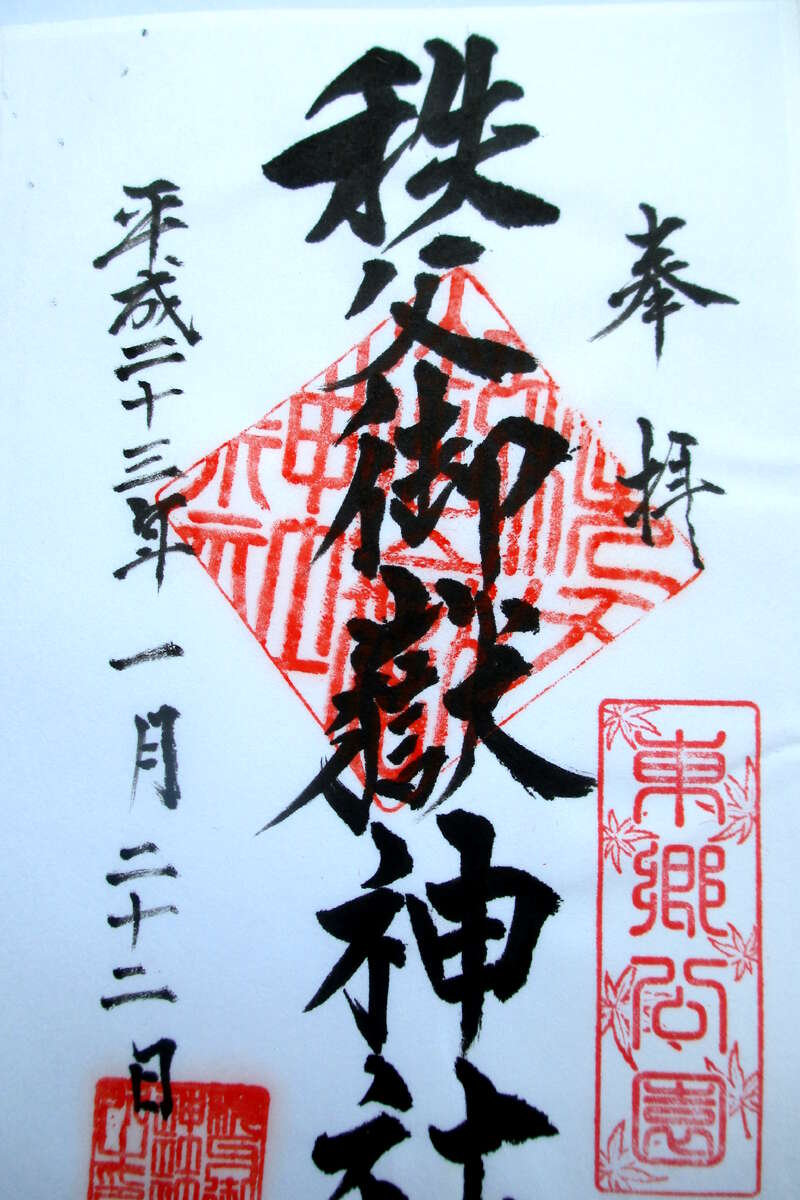 奉拝
秩父御嶽神社
平成二十三年一月二十二日
東郷公園